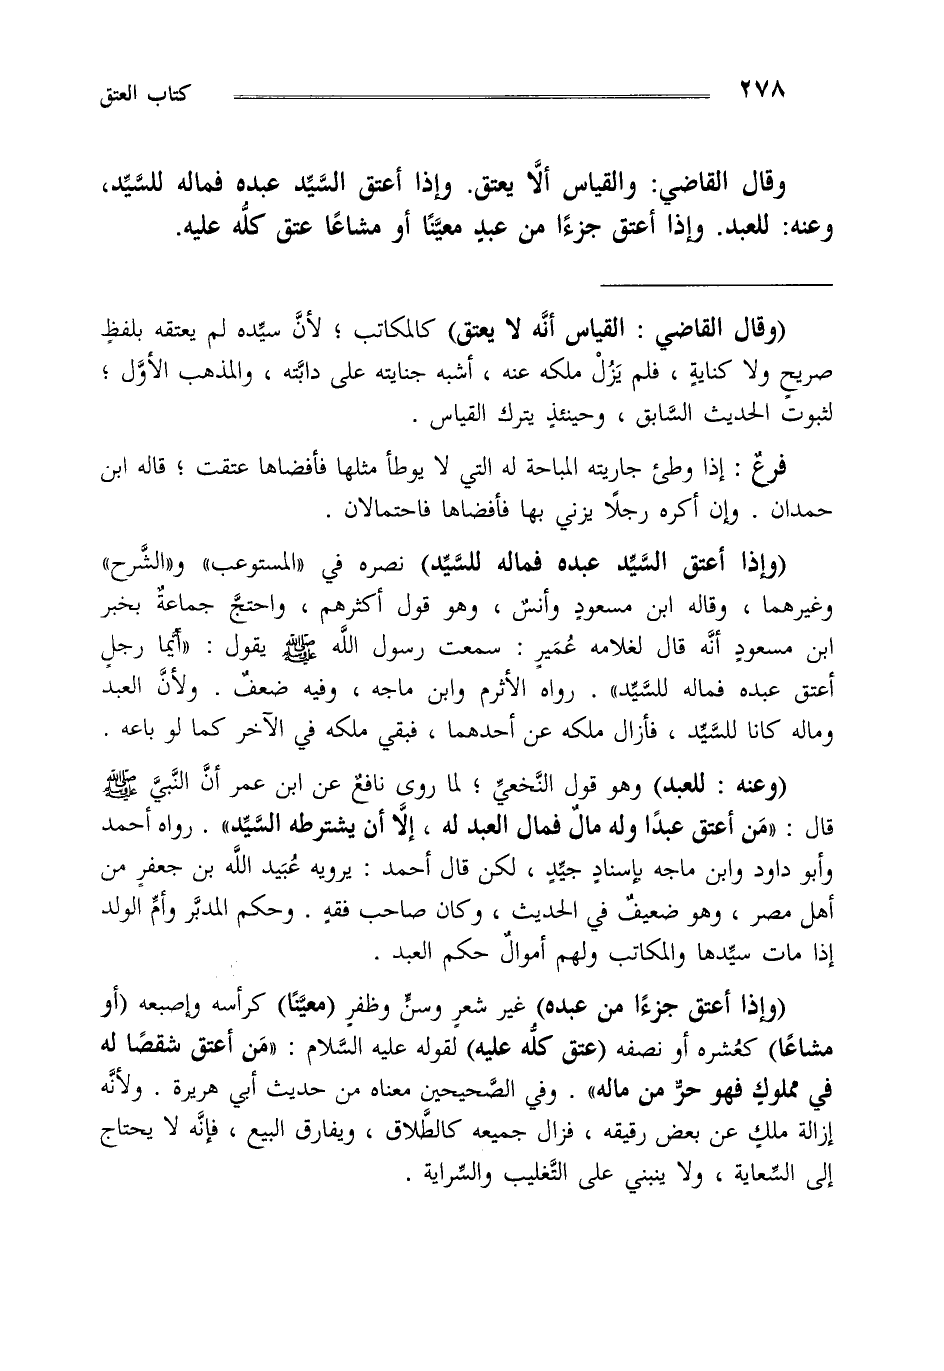 ٢٧٨ كتاب العتق
وقال القاضي: والقياس ألَّا يعتق. وإذا أعتق السَّيِّد عبده فماله للسَّيِّد،
وعنه: للعبد. وإذا أعتق جزءًا من عبدٍ معيَّنًا أو مشاعًا عتق كلُّه عليه.
(وقال القاضي : القياس أنَّه لا يعتق) كالمكاتب ؛ لأنَّ سيِّده لم يعتقه بلفظٍ
صريحٍ ولا كنايةٍ ، فلم يَزُلْ ملكه عنه ، أشبه جنايته على دابَّته ، والمذهب الأوَّل ؛
لثبوت الحديث السَّابق ، وحينئذٍ يترك القياس .
فرعٌ : إذا وطئ جاريته المباحة له التي لا يوطأ مثلها فأفضاها عتقت ؛ قاله ابن
حمدان . وإن أكره رجلًا يزني بها فأفضاها فاحتمالان .
(وإذا أعتق السَّيِّد عبده فماله للسَّيِّد) نصره في «المستوعب» و«الشَّرح»
وغيرهما ، وقاله ابن مسعودٍ وأنسٌ ، وهو قول أكثرهم ، واحتجَّ جماعةٌ بخبر
ابن مسعودٍ أنَّه قال لغلامه عُمَيرٍ : سمعت رسول اللَّه ﷺ يقول : «أيُّما رجلٍ
أعتق عبده فماله للسَّيِّد» . رواه الأثرم وابن ماجه ، وفيه ضعفٌ . ولأنَّ العبد
وماله كانا للسَّيِّد ، فأزال ملكه عن أحدهما ، فبقي ملكه في الآخر كما لو باعه .
(وعنه : للعبد) وهو قول النَّخعيِّ ؛ لما روى نافعٌ عن ابن عمر أنَّ النَّبيَّ ﷺ
قال : «مَن أعتق عبدًا وله مالٌ فمال العبد له ، إلَّا أن يشترطه السَّيِّد» . رواه أحمد
وأبو داود وابن ماجه بإسنادٍ جيِّدٍ ، لكن قال أحمد : يرويه عُبَيد اللَّه بن جعفرٍ من
أهل مصر ، وهو ضعيفٌ في الحديث ، وكان صاحب فقهٍ . وحكم المدبَّر وأمِّ الولد
إذا مات سيِّدها والمكاتب ولهم أموالٌ حكم العبد .
(وإذا أعتق جزءًا من عبده) غير شعرٍ وسنٍّ وظفرٍ (معيَّنًا) كرأسه وإصبعه (أو
مشاعًا) كعُشره أو نصفه (عتق كلُّه عليه) لقوله عليه السَّلام : «مَن أعتق شقصًا له
في مملوكٍ فهو حرٌّ من ماله» . وفي الصَّحيحين معناه من حديث أبي هريرة . ولأنَّه
إزالة ملكٍ عن بعض رقيقه ، فزال جميعه كالطَّلاق ، ويفارق البيع ، فإنَّه لا يحتاج
إلى السِّعاية ، ولا ينبني على التَّغليب والسِّراية .